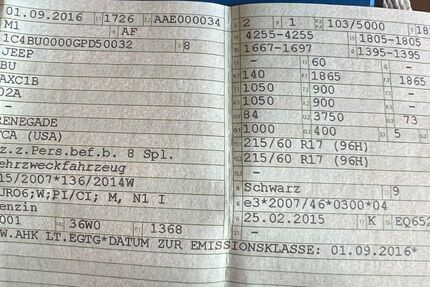 01.09.2016 1726 AAE000034
M1 AF
1C4BU0000GPD50032 8
JEEP
BU
AXC1B
02A
-
RENEGADE
CA (USA)
z.z.Pers.bef.b. 8 Spl.
ehrzweckfahrzeug
15/2007*136/2014W
UR06;W;PI/CI; M, N1 I
enzin
001 36W0 1368
W.AHK LT.EGTG*DATUM ZUR EMISSIONSKLASSE: 01.09.2016*
2 1 103/5000 18
4255-4255 1805-1805
1667-1697 1395-1395
- 60 -
140 1865 1865
1050 900 -
1050 900 -
84 3750 73
1000 400 5 -
215/60 R17 (96H)
215/60 R17 (96H)
-
Schwarz 9
e3*2007/46*0300*04
25.02.2015 K EQ652
-